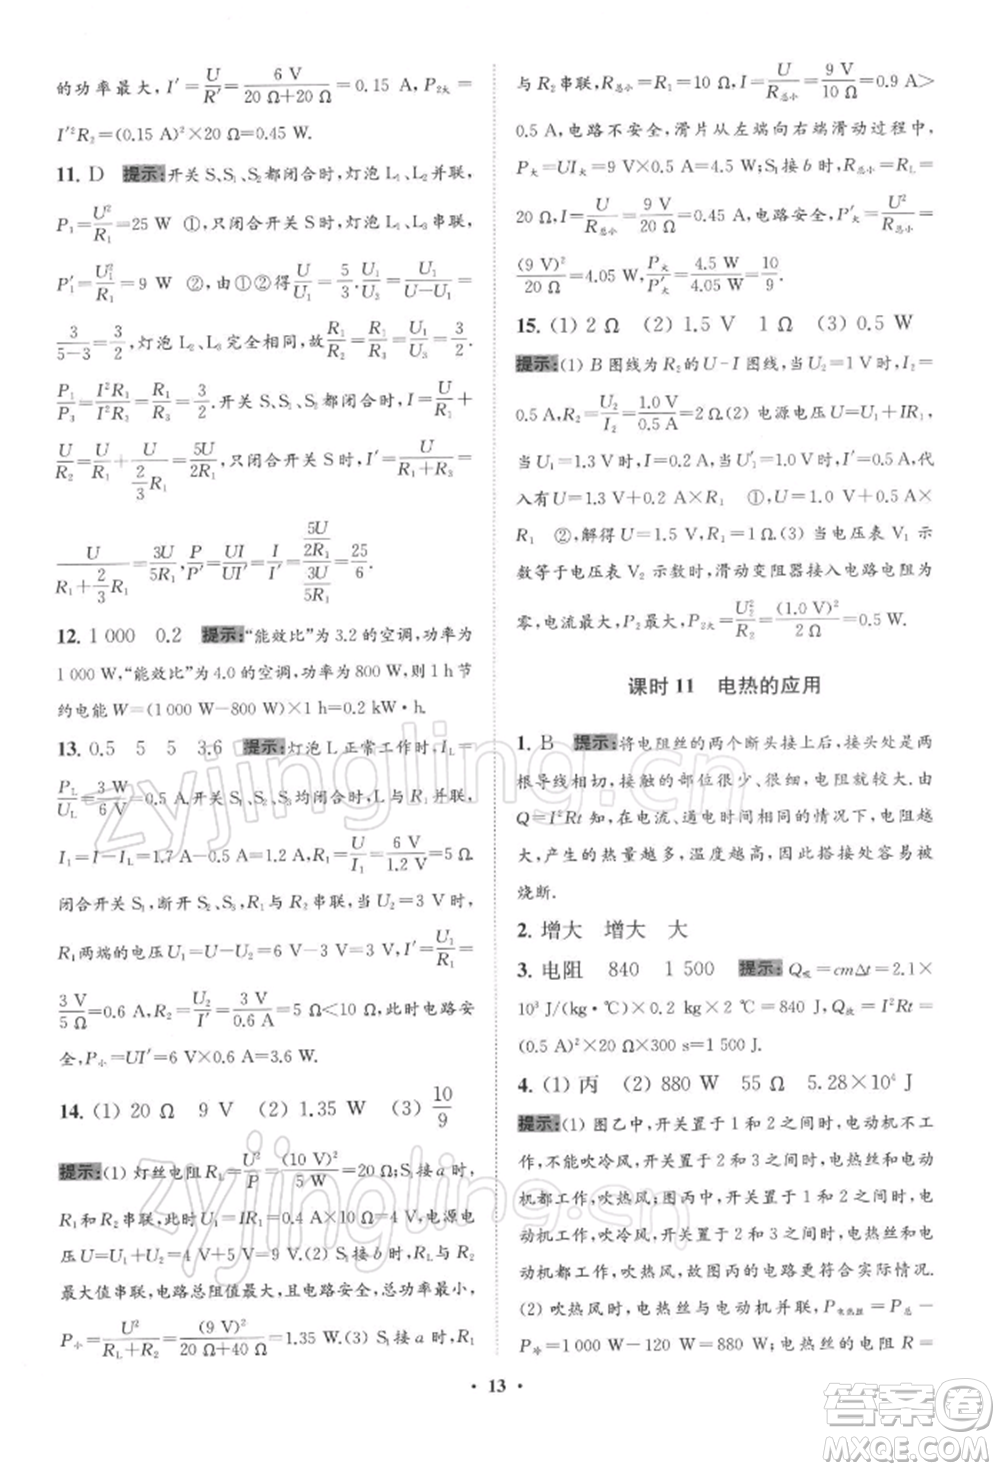 的功率最大, I′=U/R′=6 V/(20 Ω+20 Ω)=0.15 A, P₂大=
I′²R₂=(0.15 A)²×20 Ω=0.45 W.
11. D 提示:开关 S、S₁、S₂都闭合时,灯泡 L₁、L₂并联,
P₁=U²/R₁=25 W ①,只闭合开关 S时,灯泡 L₁、L₂串联,
P′₁=U₁²/R₁=9 W ②,由①②得U/U₁=5/3.故U₁/U₂=U₁/(U-U₁)=
3/(5-3)=3/2,灯泡 L₁、L₂完好且串联,故R₁/R₂=U₁/U₂=3/2,
P₁/P₃=I²R₁/I²R₃=R₁/R₃=3/2.开关 S、S₁、S₂都闭合时,I=U/R₁+
U/R₂=U/R₁+U/(2/3 R₁)=5U/2R₁,只闭合开关 S 时,I′=U/(R₁+R₂)=
U/(R₁+2/3 R₁)=3U/5R₁,P/P′=UI/UI′=I/I′=(5U/2R₁)/(3U/5R₁)=25/6.
12. 1 000 0.2 提示:“能效比”为 3.2 的空调,功率为
1 000 W,“能效比”为 4.0 的空调,功率为 800 W,则 1 h 节
约电能 W=(1 000 W-800 W)×1 h=0.2 kW·h.
13. 0.5 5 5 3.6 提示:灯泡 L 正常工作时,I_L=
P_L/U_L=3 W/6 V=0.5 A.开关 S₁、S₃均闭合时,L 与 R₁并联,
I₁=I-I_L=1.7 A-0.5 A=1.2 A,R₁=U/I₁=6 V/1.2 V=5 Ω.
闭合开关 S₁,断开 S₂、S₃时,R₁与 R₂串联,当 U₂=3 V 时,
R₁两端的电压 U₁=U-U₂=6 V-3 V=3 V,I′=U₁/R₁=
3 V/5 Ω=0.6 A,R₂=U₂/I′=3 V/0.6 A=5 Ω<10 Ω,此时电路安
全,P小=UI′=6 V×0.6 A=3.6 W.
14. (1) 20 Ω 9 V (2) 1.35 W (3) 10/9
提示:(1) 灯丝电阻 R_L=U_L²/P=(10 V)²/5 W=20 Ω;S₁接 a 时,
R₁和 R₂串联,此时 U₁=IR₁=0.4 A×10 Ω=4 V,电源电
压 U=U₁+U₂=4 V+5 V=9 V.(2) S₁接 b 时,R_L与 R₂
最大值串联,电路总阻值最大,且电路安全,总功率最小,
P小=U²/(R_L+R₂)=(9 V)²/(20 Ω+40 Ω)=1.35 W.(3) S₁接 a 时,R₁
与 R₂串联,R总小=R₁=10 Ω,I=U/R总小=9 V/10 Ω=0.9 A>
0.5 A,电路不安全,滑片从左端向右端滑动过程中,
P大=UI大=9 V×0.5 A=4.5 W;S₁接 b 时,R总小=R_L=
20 Ω,I=U/R总小=9 V/20 Ω=0.45 A,电路安全,P′大=U²/R总小=
(9 V)²/20 Ω=4.05 W,P大/P′大=4.5 W/4.05 W=10/9.
15. (1) 2 Ω (2) 1.5 V 1 Ω (3) 0.5 W
提示:(1) B 图线为 R₂的 U-I 图线,当 U₂=1 V 时,I₂=
0.5 A,R₂=U₂/I₂=1.0 V/0.5 A=2 Ω.(2) 电源电压 U=U₁+IR₁,
当 U₁=1.3 V 时,I=0.2 A,当 U′₁=1.0 V 时,I′=0.5 A,代
入有 U=1.3 V+0.2 A×R₁ ①,U=1.0 V+0.5 A×
R₁ ②,解得 U=1.5 V,R₁=1 Ω.(3) 当电压表 V₁ 示
数等于电压表 V₂ 示数时,滑动变阻器接入电路电阻为
零,电流最大,P₂最大,P₂大=U₂²/R₂=(1.0 V)²/2 Ω=0.5 W.
课时 11 电热的应用
1. B 提示:将电阻丝的两个断头接上后,仅仅是两
根导线相切,接触的部位很少、很细,电阻就大,由
Q=I²Rt 知,在电流、通电时间相同的情况下,电阻越
大,产生的热量越多,温度越高,因此搭接处容易被
烧断.
2. 增大 增大 大
3. 电阻 840 1 500 提示:Q吸=cmΔt=2.1×
10³ J/(kg·℃)×0.2 kg×2℃=840 J,Q放=I²Rt=
(0.5 A)²×20 Ω×300 s=1 500 J.
4. (1) 丙 (2) 880 W 55 Ω 5.28×10⁴ J
提示:(1) 图乙中,开关置于 1 和 2 之间时,电动机不工
作,不能吹冷风,开关置于 2 和 3 之间时,电热丝和电动
机都工作,吹热风;图丙中,开关置于 1 和 2 之间时,电动
机工作,吹冷风,开关置于 2 和 3 之间时,电热丝和电
动机都工作,吹热风,故图丙中的电路符合实际情况.
(2) 吹热风时,电热丝与电动机并联,P电热丝=P总-
P冷=1 000 W-120 W=880 W;电热丝的电阻 R=
· 13 ·
zyjingling.cn
zyjingling.cn
答案圈
MXQE.COM